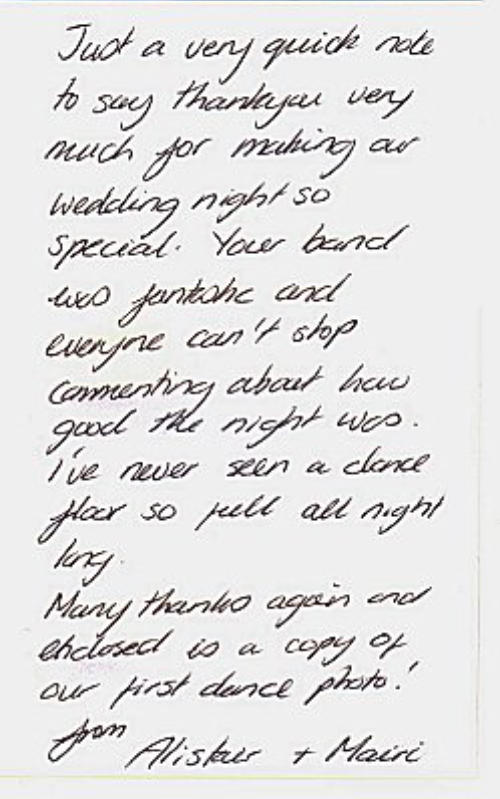 Just a very quick note
to say thankyou very
much for making our
wedding night so
special. Your band
was fantastic and
everyone can't stop
commenting about how
good the night was.
I've never seen a dance
floor so full all night
long.
Many thanks again and
enclosed is a copy of
our first dance photo!
from
Alistair + Mairi